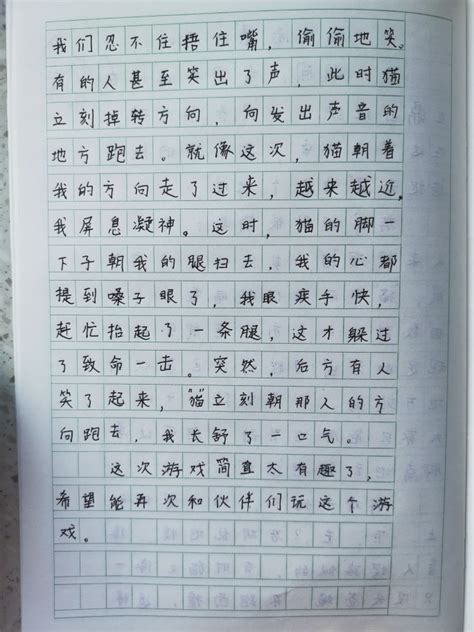 我们忍不住捂住嘴，偷偷地笑。
有的人甚至笑出了声，此时猫
立刻掉转方向，向发出声音的
地方跑去。就像这次，猫朝着
我的方向走了过来，越来越近，
我屏息凝神。这时，猫的脚一
下子朝我的腿扫去，我的心都
提到嗓子眼了，我眼疾手快，
赶忙抬起了一条腿，这才躲过
了致命一击。突然，后方有人
笑了起来，“猫”立刻朝那人的方
向跑去，我长舒了一口气。
这次游戏简直太有趣了，
希望能再次和伙伴们玩这个游
戏。